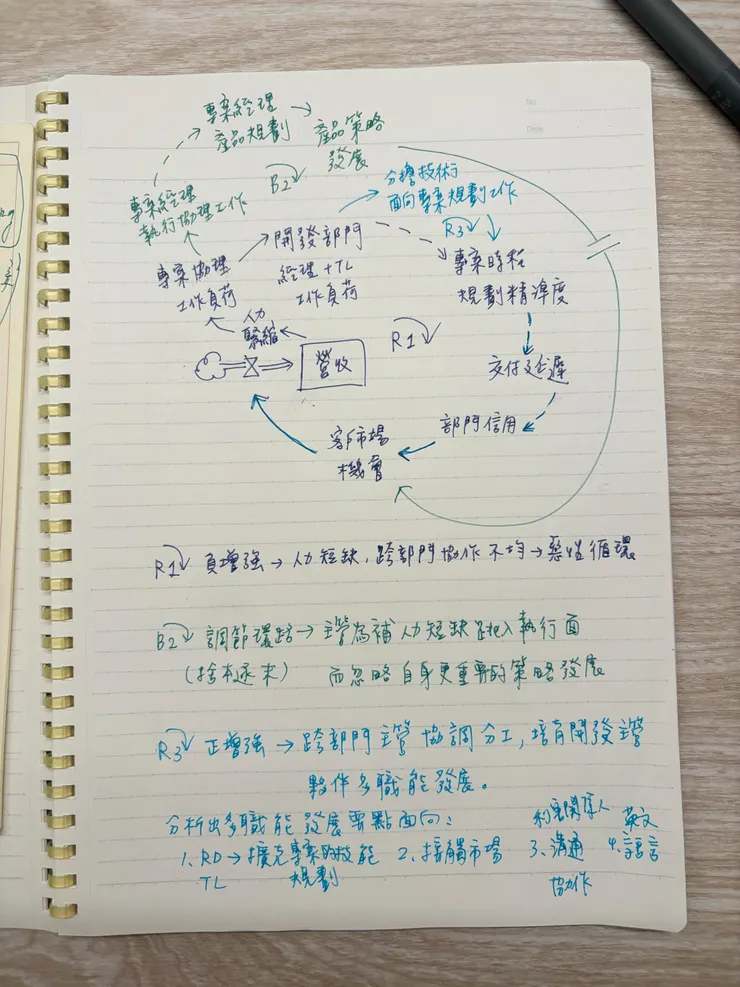 No.
Date
專案經理
產品規劃
產品策略
發展
B2
專案經理
執行協理工作
分擔技術
面向專案規劃工作
R3
開發部門
經理+TL
工作負荷
專案協理
工作負荷
專案時程
規劃精準度
人力
緊縮
營收
R1
交付延遲
部門信用
客戶市場
機會
R1 負增強→人力短缺,跨部門協作不均→惡性循環
B2 調節環路→主管為補人力短缺跳入執行面
(捨本逐末) 而忽略自身更重要的策略發展
R3 正增強→跨部門主管協調分工,培育開發主管
夥伴多職能發展。
分析出多職能發展要點面向:
1、RD→擴充專案的技能 2、接觸市場 3、溝通 4、語言
利害關係人 英文
TL 規劃 協作